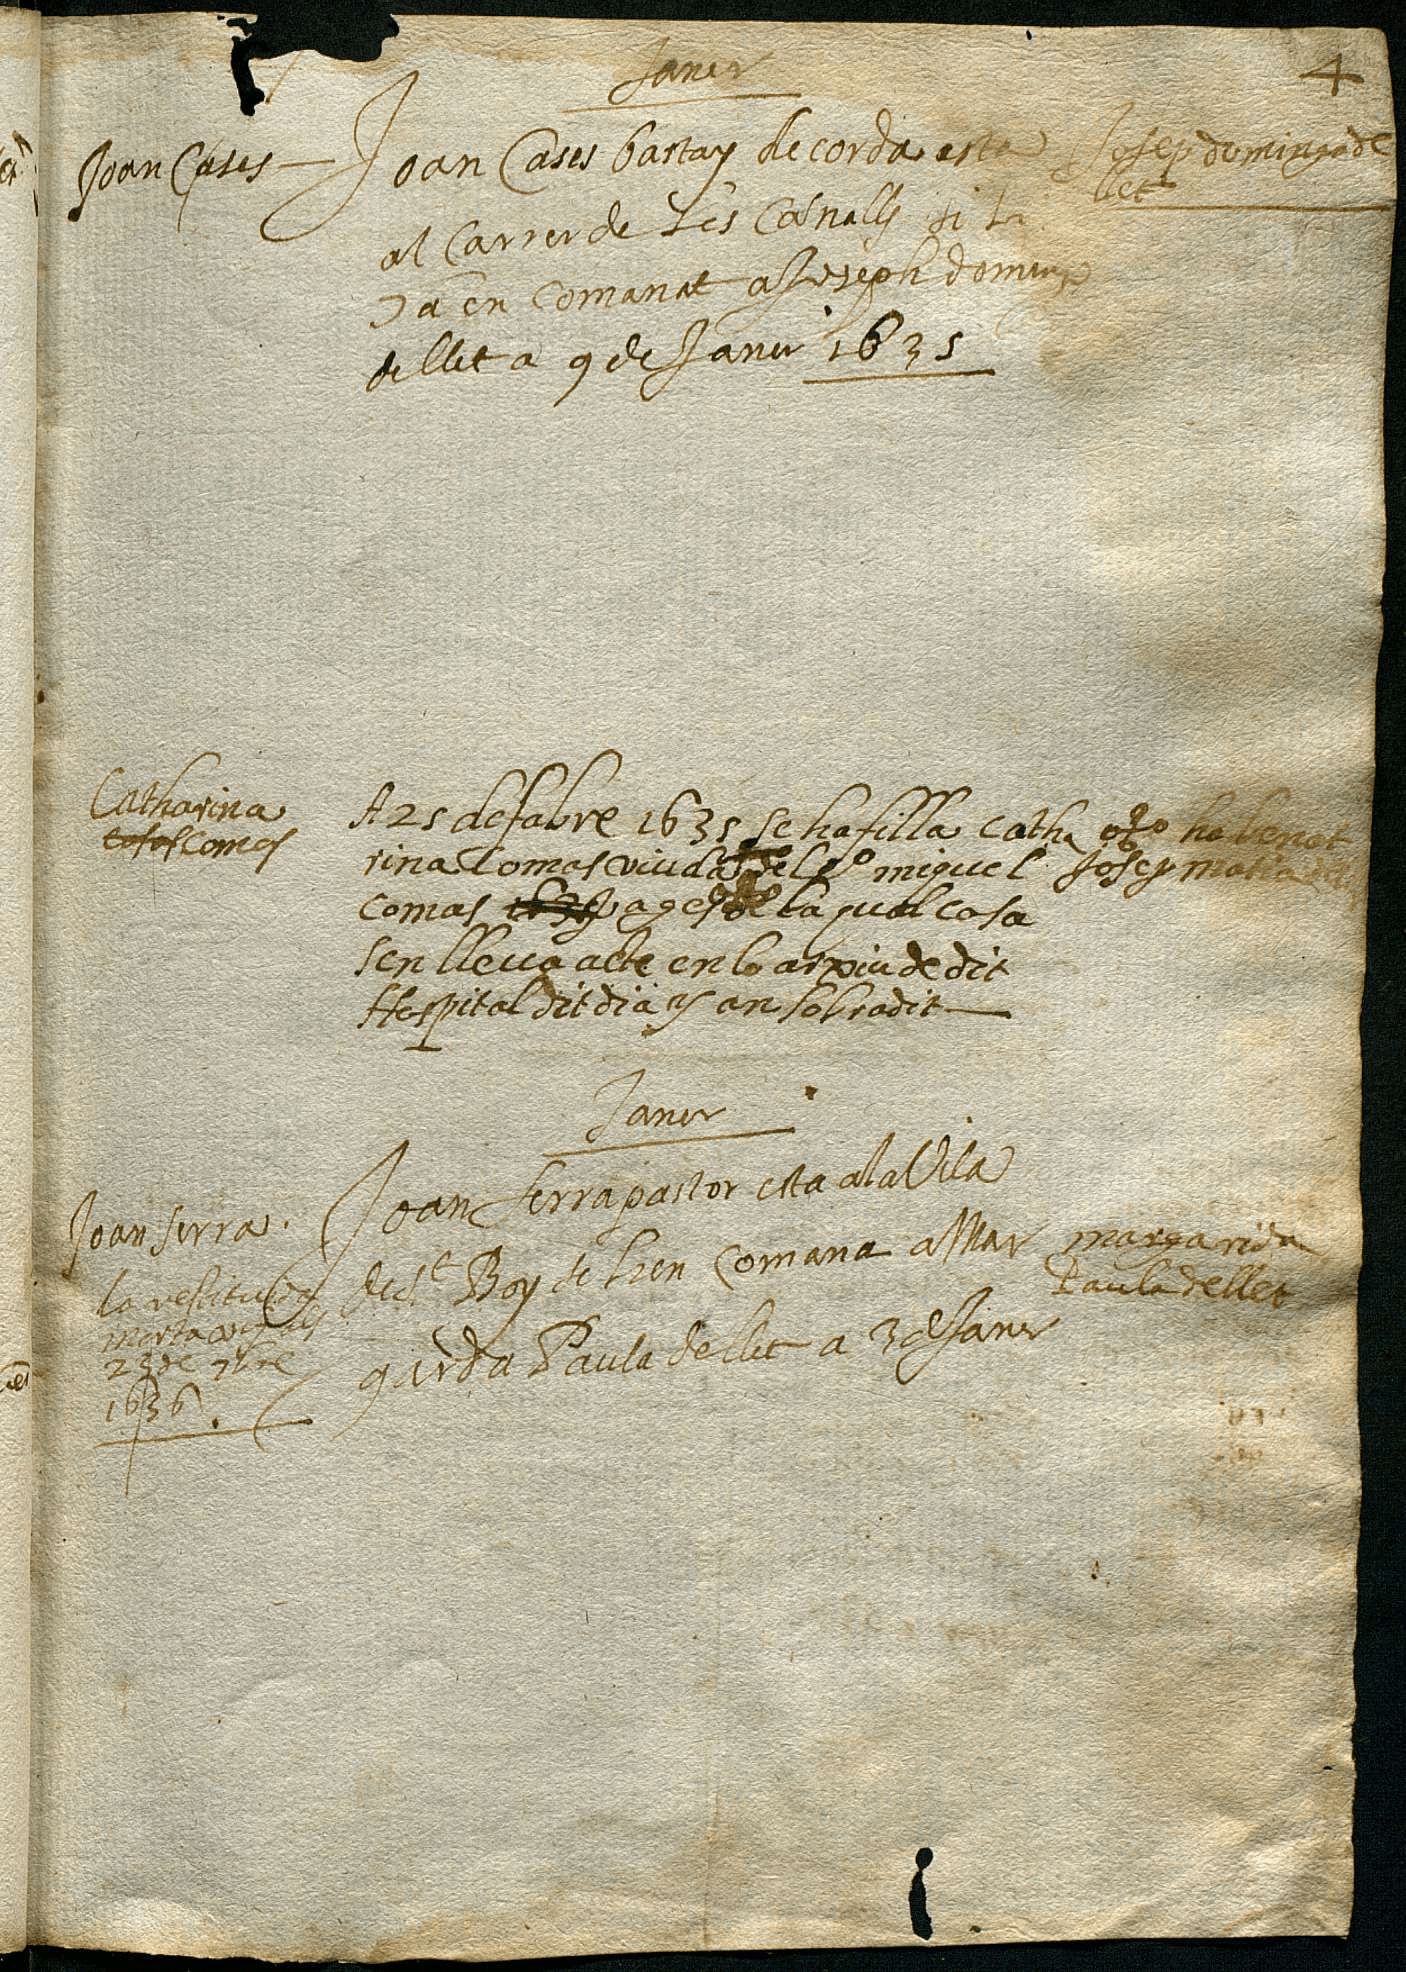 Janer
4
Joan Cases
Joan Cases bastay de corda esta
al Carrer de Les Canalls si li
a en comanat a Joseph doming
de llet a 9 de Janer 1635
Josep domingo de
llet
Catharina
comas
A 25 de fabre 1635 se ha filla Catha
rina Comas viuda del qº miguel
comas pages de la qual cosa
sen lleva acte en lo arxiu de dit
Hospital dit dia y an sobradit
ha benet
Josep maria
Janer
Joan serra
Joan serra pastor esta a la Vila
de St Boy se li en comana a Mar
garida Paula de llet a 3 de Janer
la restituida
morta als
23 de 9bre
1636
margarida
Paula de llet